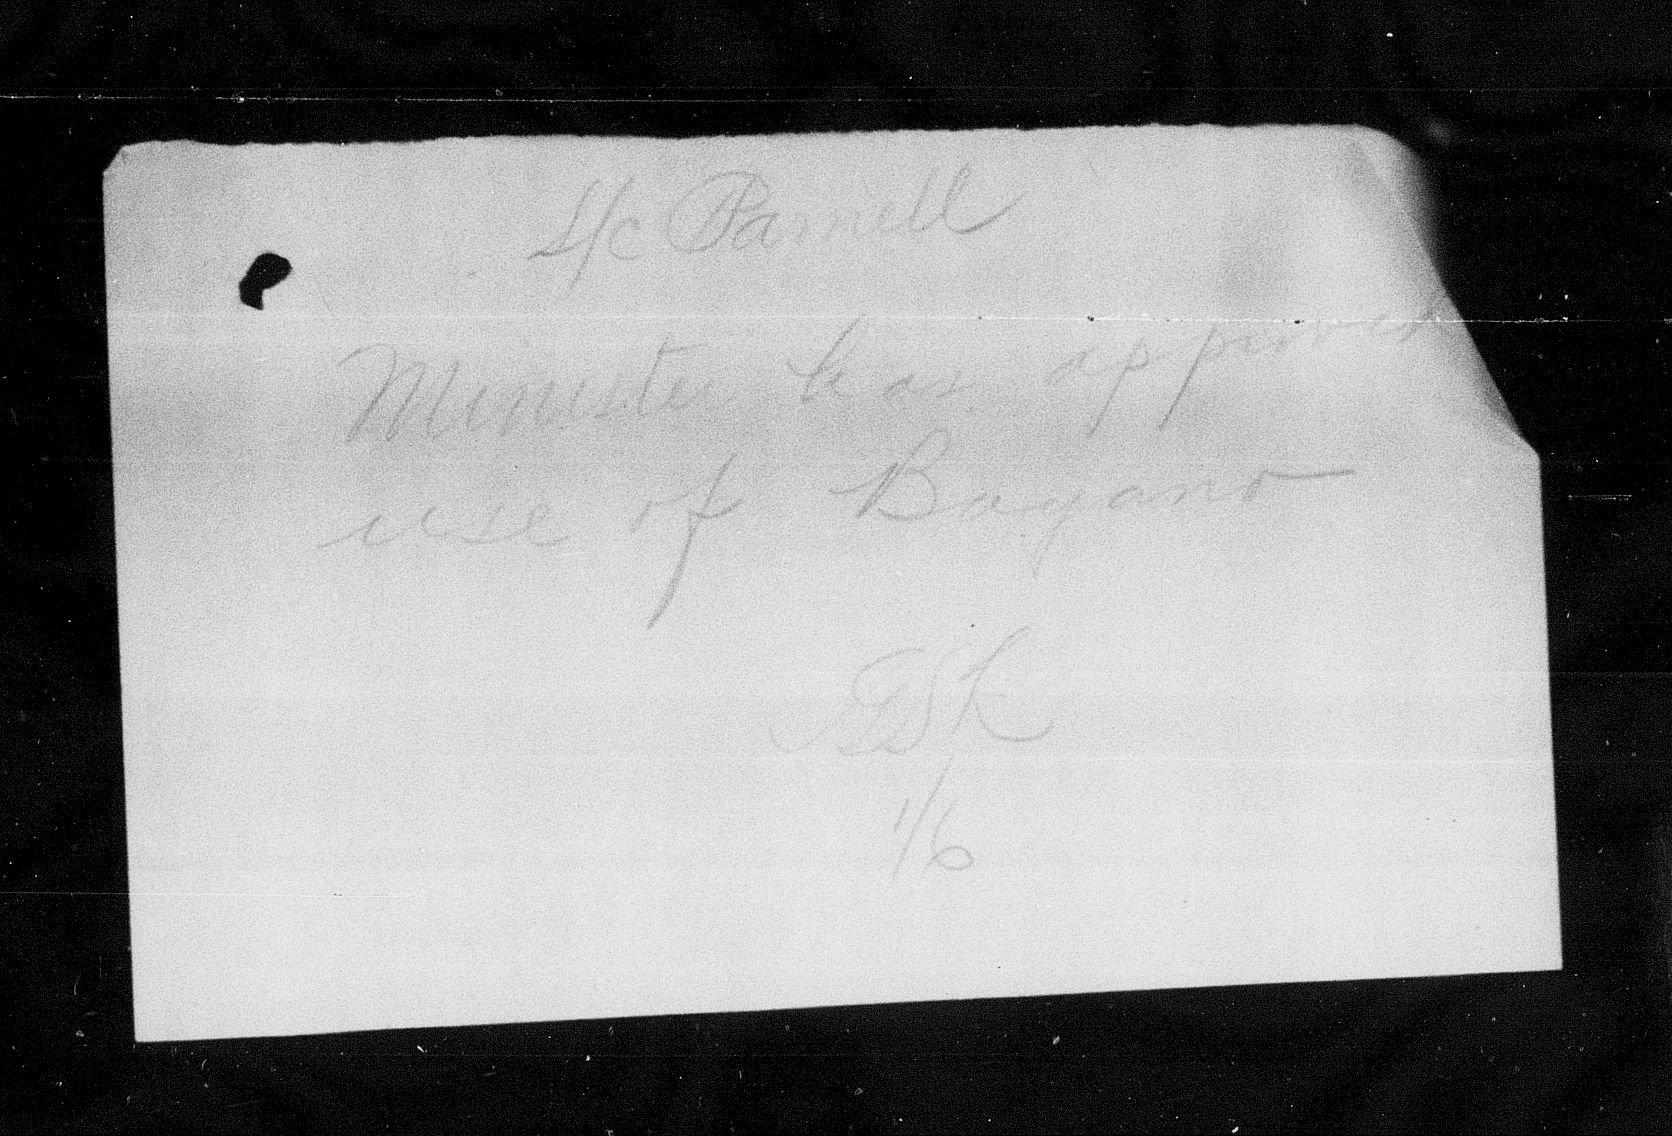 S/c Parnell
Minister has approved
use of Bayano
GSK
1/6